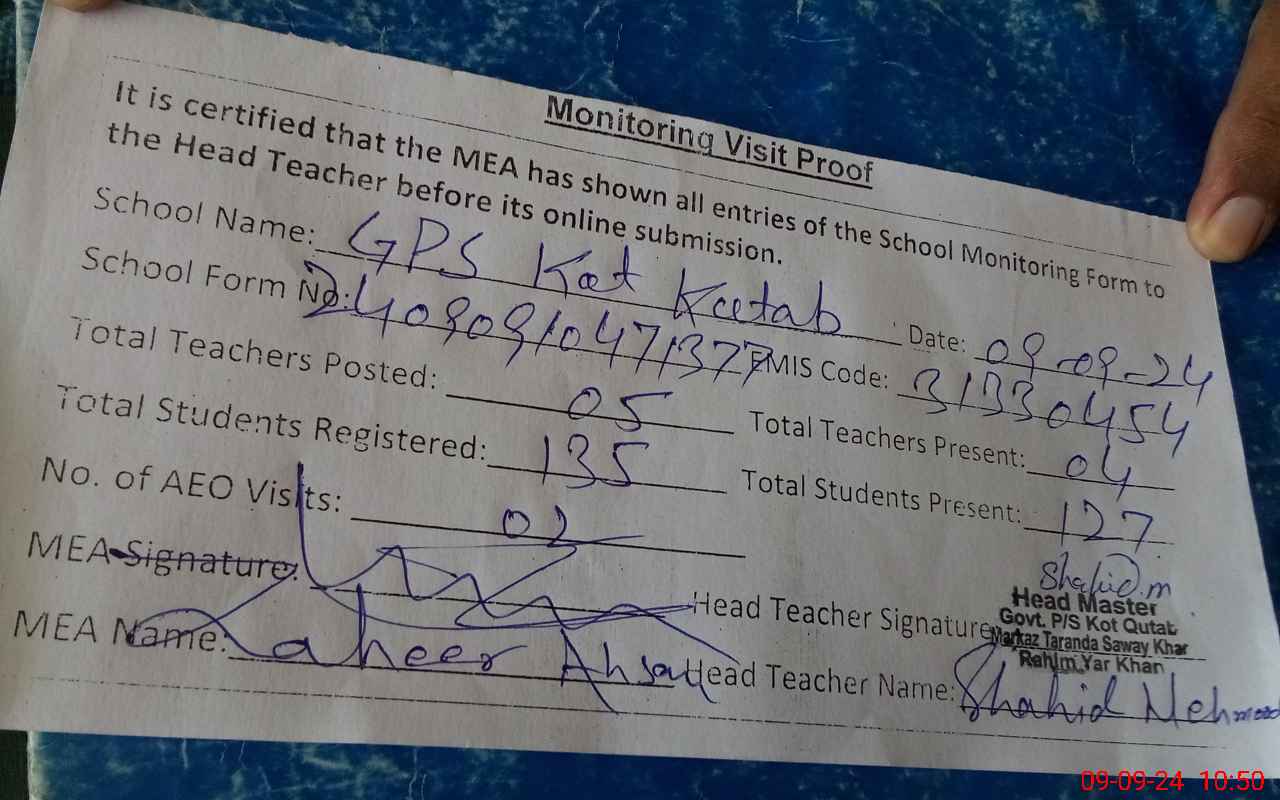 Monitoring Visit Proof
It is certified that the MEA has shown all entries of the School Monitoring Form to
the Head Teacher before its online submission.
School Name: GPS Kot Kutab Date: 09-09-24
School Form No: 2409091047137 EMIS Code: 31330454
Total Teachers Posted: 05 Total Teachers Present: 04
Total Students Registered: 135 Total Students Present: 127
No. of AEO Visits: 02
MEA Signature: Head Teacher Signature Shahid.m
Head Master
Govt. P/S Kot Qutab
Markaz Taranda Saway Khan
Rahim Yar Khan
MEA Name: Zaheer Ahsan Head Teacher Name: Shahid Mehmood
09-09-24 10:50